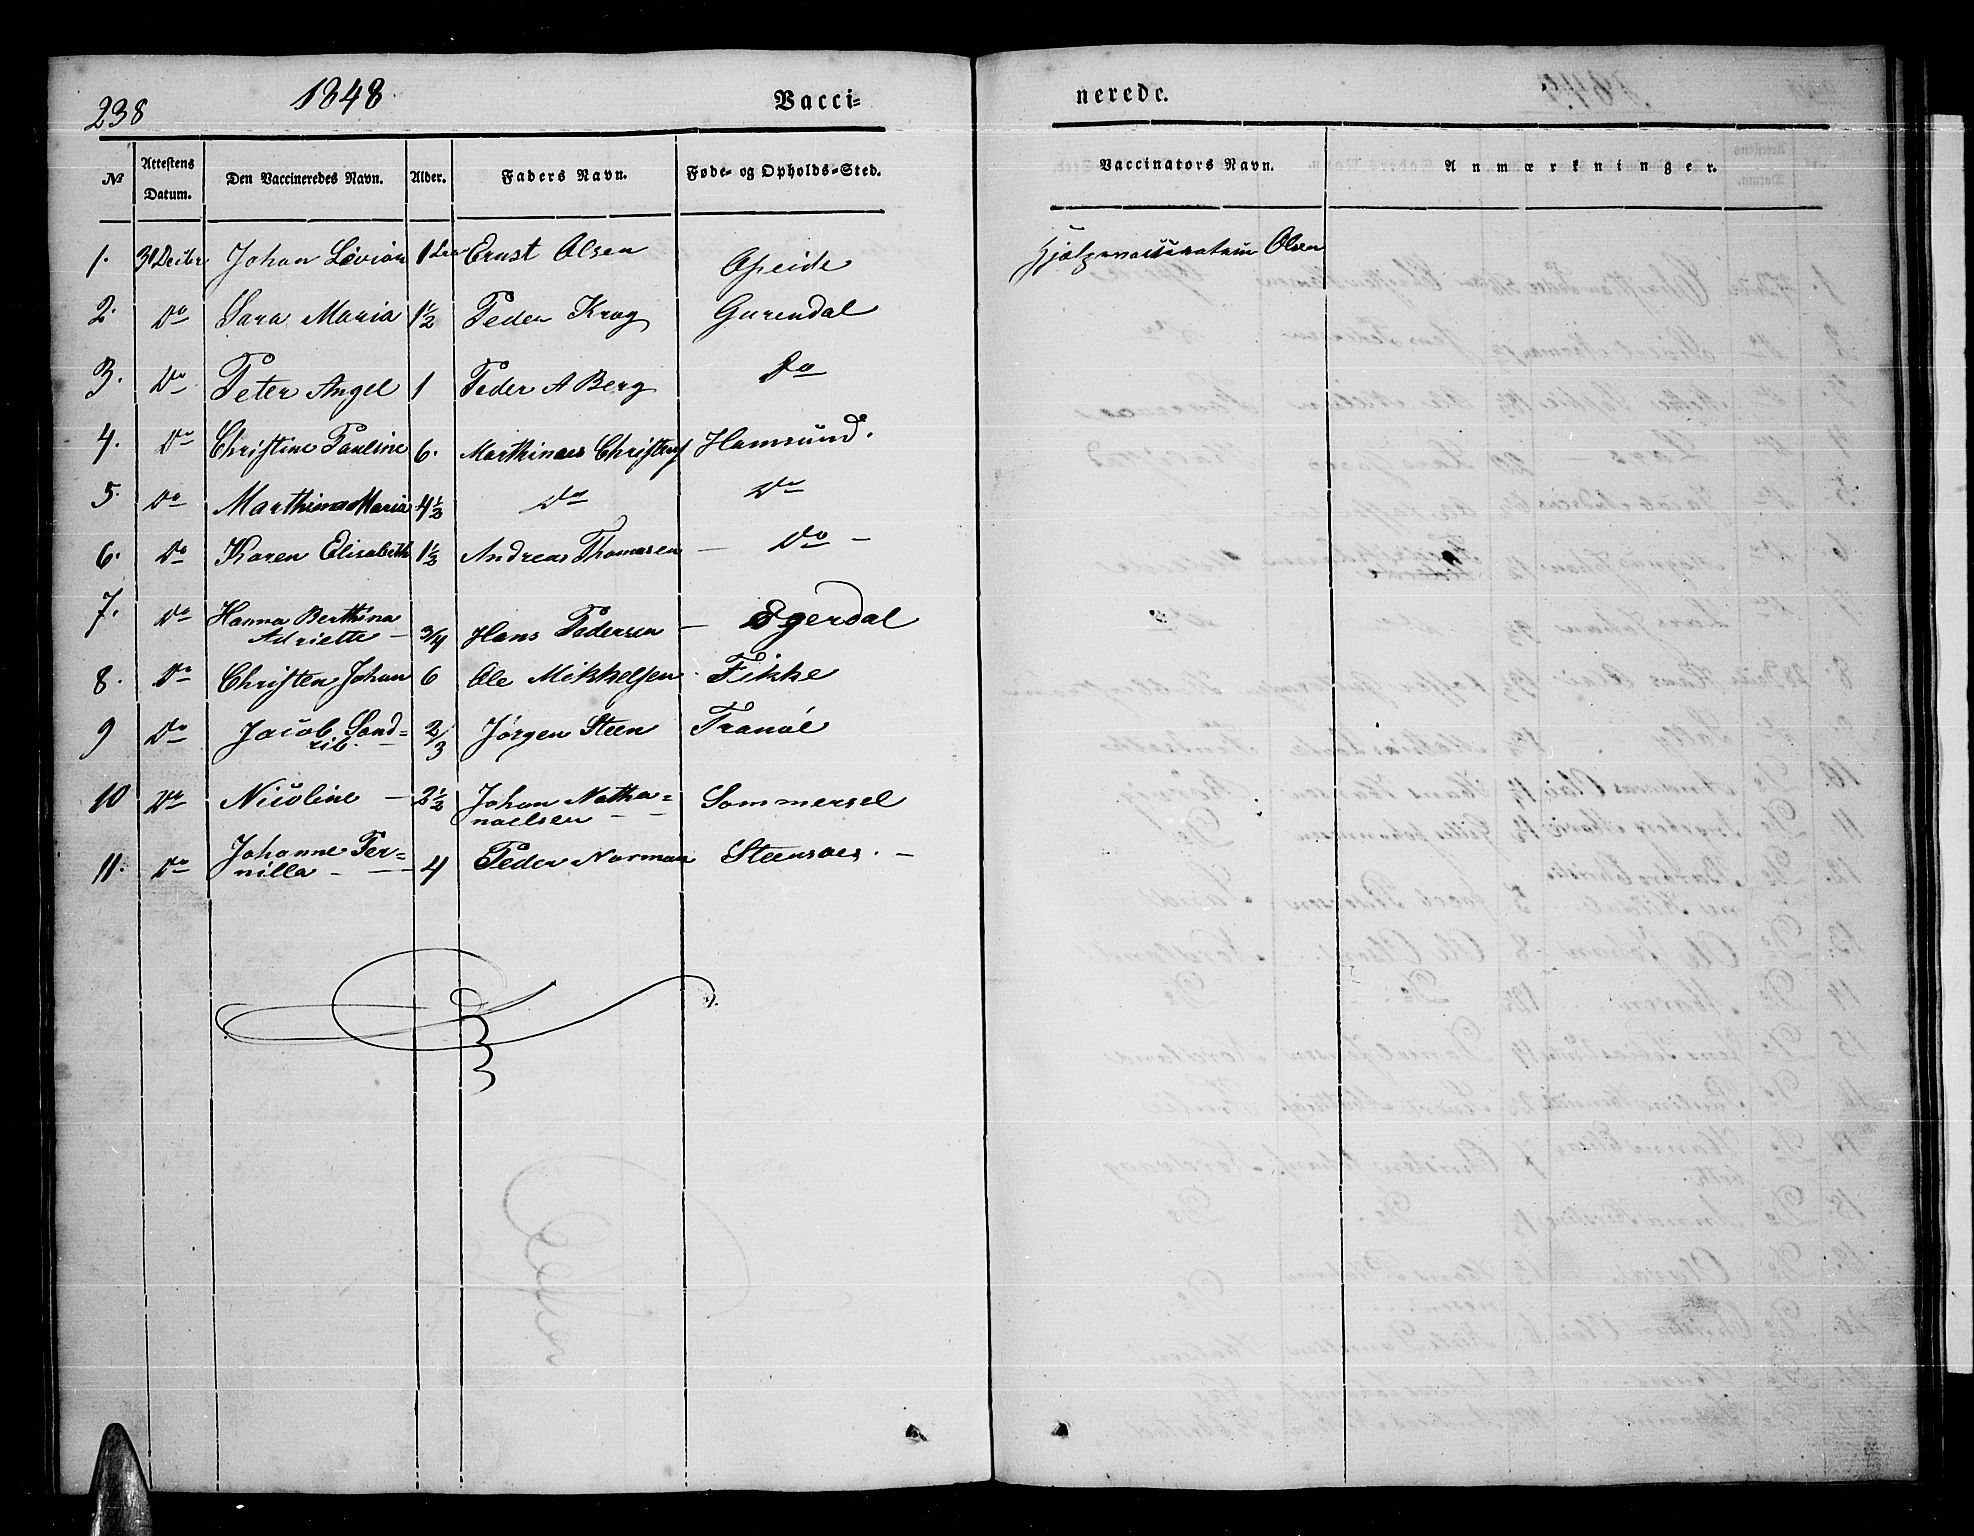 238 1848 Vacci= nerede.
№ Attestens Datum. Den Vaccineredes Navn. Alder. Faders Navn. Føde- og Opholds-Sted. Vaccinators Navn. Anmærkninger.
1. 31 Decbr Johan Lovion 1 Ernst Olsen Opeide Hjelpevaccinatum Olsen
2. Do Sara Maria 1½ Peder Krog Gurendal
3. Do Peter Angel 1 Peder A Berg Do
4. Do Christine Pauline 6. Marthinus Hamsund.
5. Do Marthina Maria 4½ Do Do
6. Do Karen Elisabeth 1½ Andreas Thomasen — Do —
7. Do Hanna Berthina
Adriette — 3/4 Hans Pedersen — Egerdal
8. Do Christen Johan 6 Ole Mikkelsen Fikke
9 Do Jacob Sond=
rib. 2/3 Jørgen Steen Tranøe
10 Do Nicoline — 2½ Johan Natha=
naelsen Sommersel
11. Do Johanne Per=
nilla — 4 Peder Norman Steensoes. —